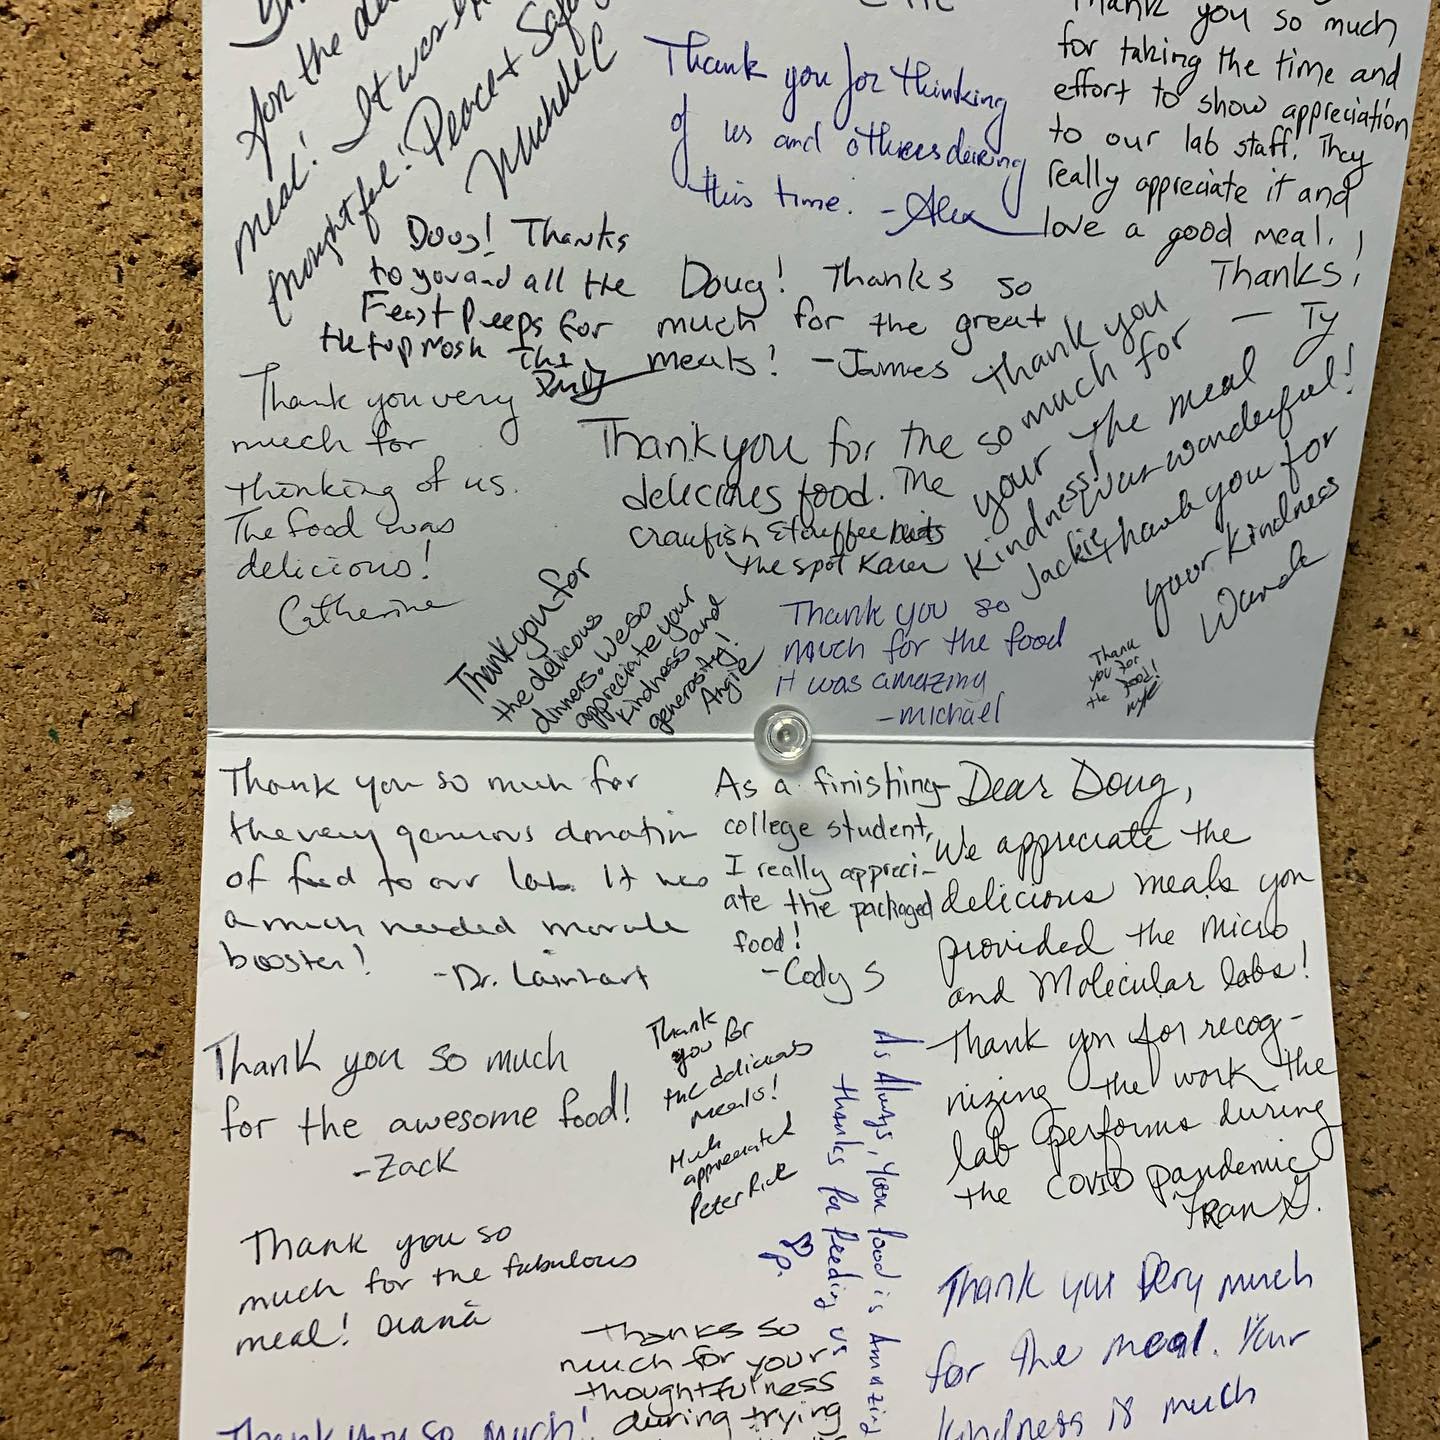 for the
meal! It was
thoughtful! Peace & Safe
Michele C
Thank you for thinking
of us and others during
this time. -Alex
Thank you so much
for taking the time and
effort to show appreciation
to our lab staff. They
really appreciate it and
love a good meal.
Thanks!
- Ty
Doug! Thanks
to you and all the
Feast Peeps for
Doug! Thanks so
much for the great
meals! -James
Thank you
so much for
your
kindness!
Jackie
The meal
was wonderful!
thank you for
your kindness
Wanda
Thank you very
much for
thinking of us.
The food was
delicious!
Catherine
Thank you for the
delicious food. The
crawfish Etouffee hits
the spot Karen
Thank you for
the delicious
dinners. We so
appreciate your
kindness and
generosity!
Angie
Thank you so
much for the food
it was amazing
-michael
Thank
you for
the food!
Thank you so much for
the very generous donation
of food to our lab. It was
a much needed morale
booster! -Dr. Lainhart
As a finishing
college student,
I really appreci-
ate the packaged
food!
-Cody S
Dear Doug,
We appreciate the
delicious meals you
provided the micro
and Molecular labs!
Thank you for recog-
nizing the work the
lab performs during
the COVID pandemic
Fran G.
Thank you so much
for the awesome food!
-Zack
Thank
you for
the delicious
meals!
Much
appreciated
Peter Rick
As Always, Your food is Amazing
thanks for feeding us
P.
Thank you so
much for the fabulous
meal! Diana
Thanks so
much for your
thoughtfulness
during trying
Thank you Very much
for the meal. Your
kindness is much
Thank you so much!